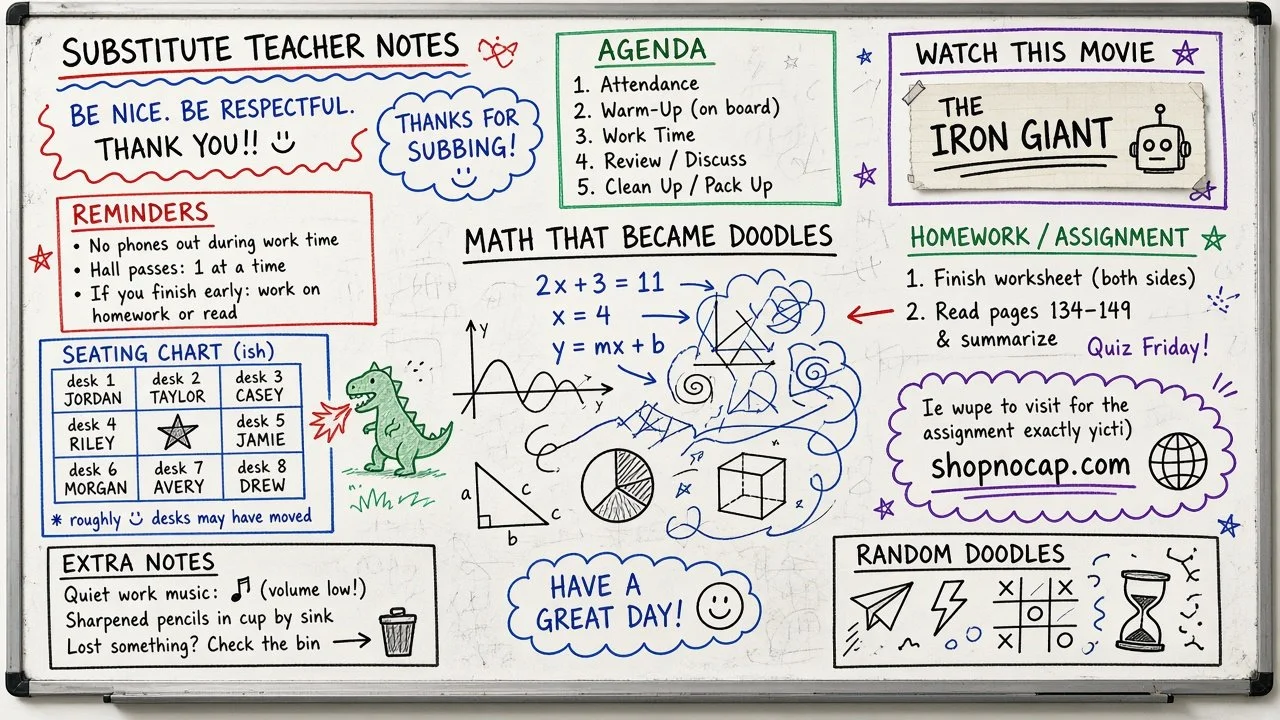 SUBSTITUTE TEACHER NOTES
BE NICE. BE RESPECTFUL.
THANK YOU!!
THANKS FOR
SUBBING!
AGENDA
1. Attendance
2. Warm-Up (on board)
3. Work Time
4. Review / Discuss
5. Clean Up / Pack Up
WATCH THIS MOVIE
THE
IRON GIANT
REMINDERS
• No phones out during work time
• Hall passes: 1 at a time
• If you finish early: work on
homework or read
MATH THAT BECAME DOODLES
2x + 3 = 11
x = 4
y = mx + b
y
y
a
c
c
b
HOMEWORK / ASSIGNMENT
1. Finish worksheet (both sides)
2. Read pages 134–149
& summarize
Quiz Friday!
SEATING CHART (ish)
desk 1
JORDAN
desk 2
TAYLOR
desk 3
CASEY
desk 4
RILEY
desk 5
JAMIE
desk 6
MORGAN
desk 7
AVERY
desk 8
DREW
* roughly desks may have moved
Ie wupe to visit for the
assignment exactly yicti)
shopnocap.com
EXTRA NOTES
Quiet work music: (volume low!)
Sharpened pencils in cup by sink
Lost something? Check the bin
HAVE A
GREAT DAY!
RANDOM DOODLES
X X
O
X O